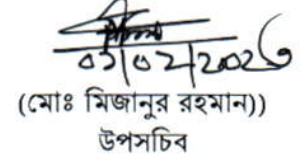 ০১/০২/২০২৩
(মোঃ মিজানুর রহমান))
উপসচিব